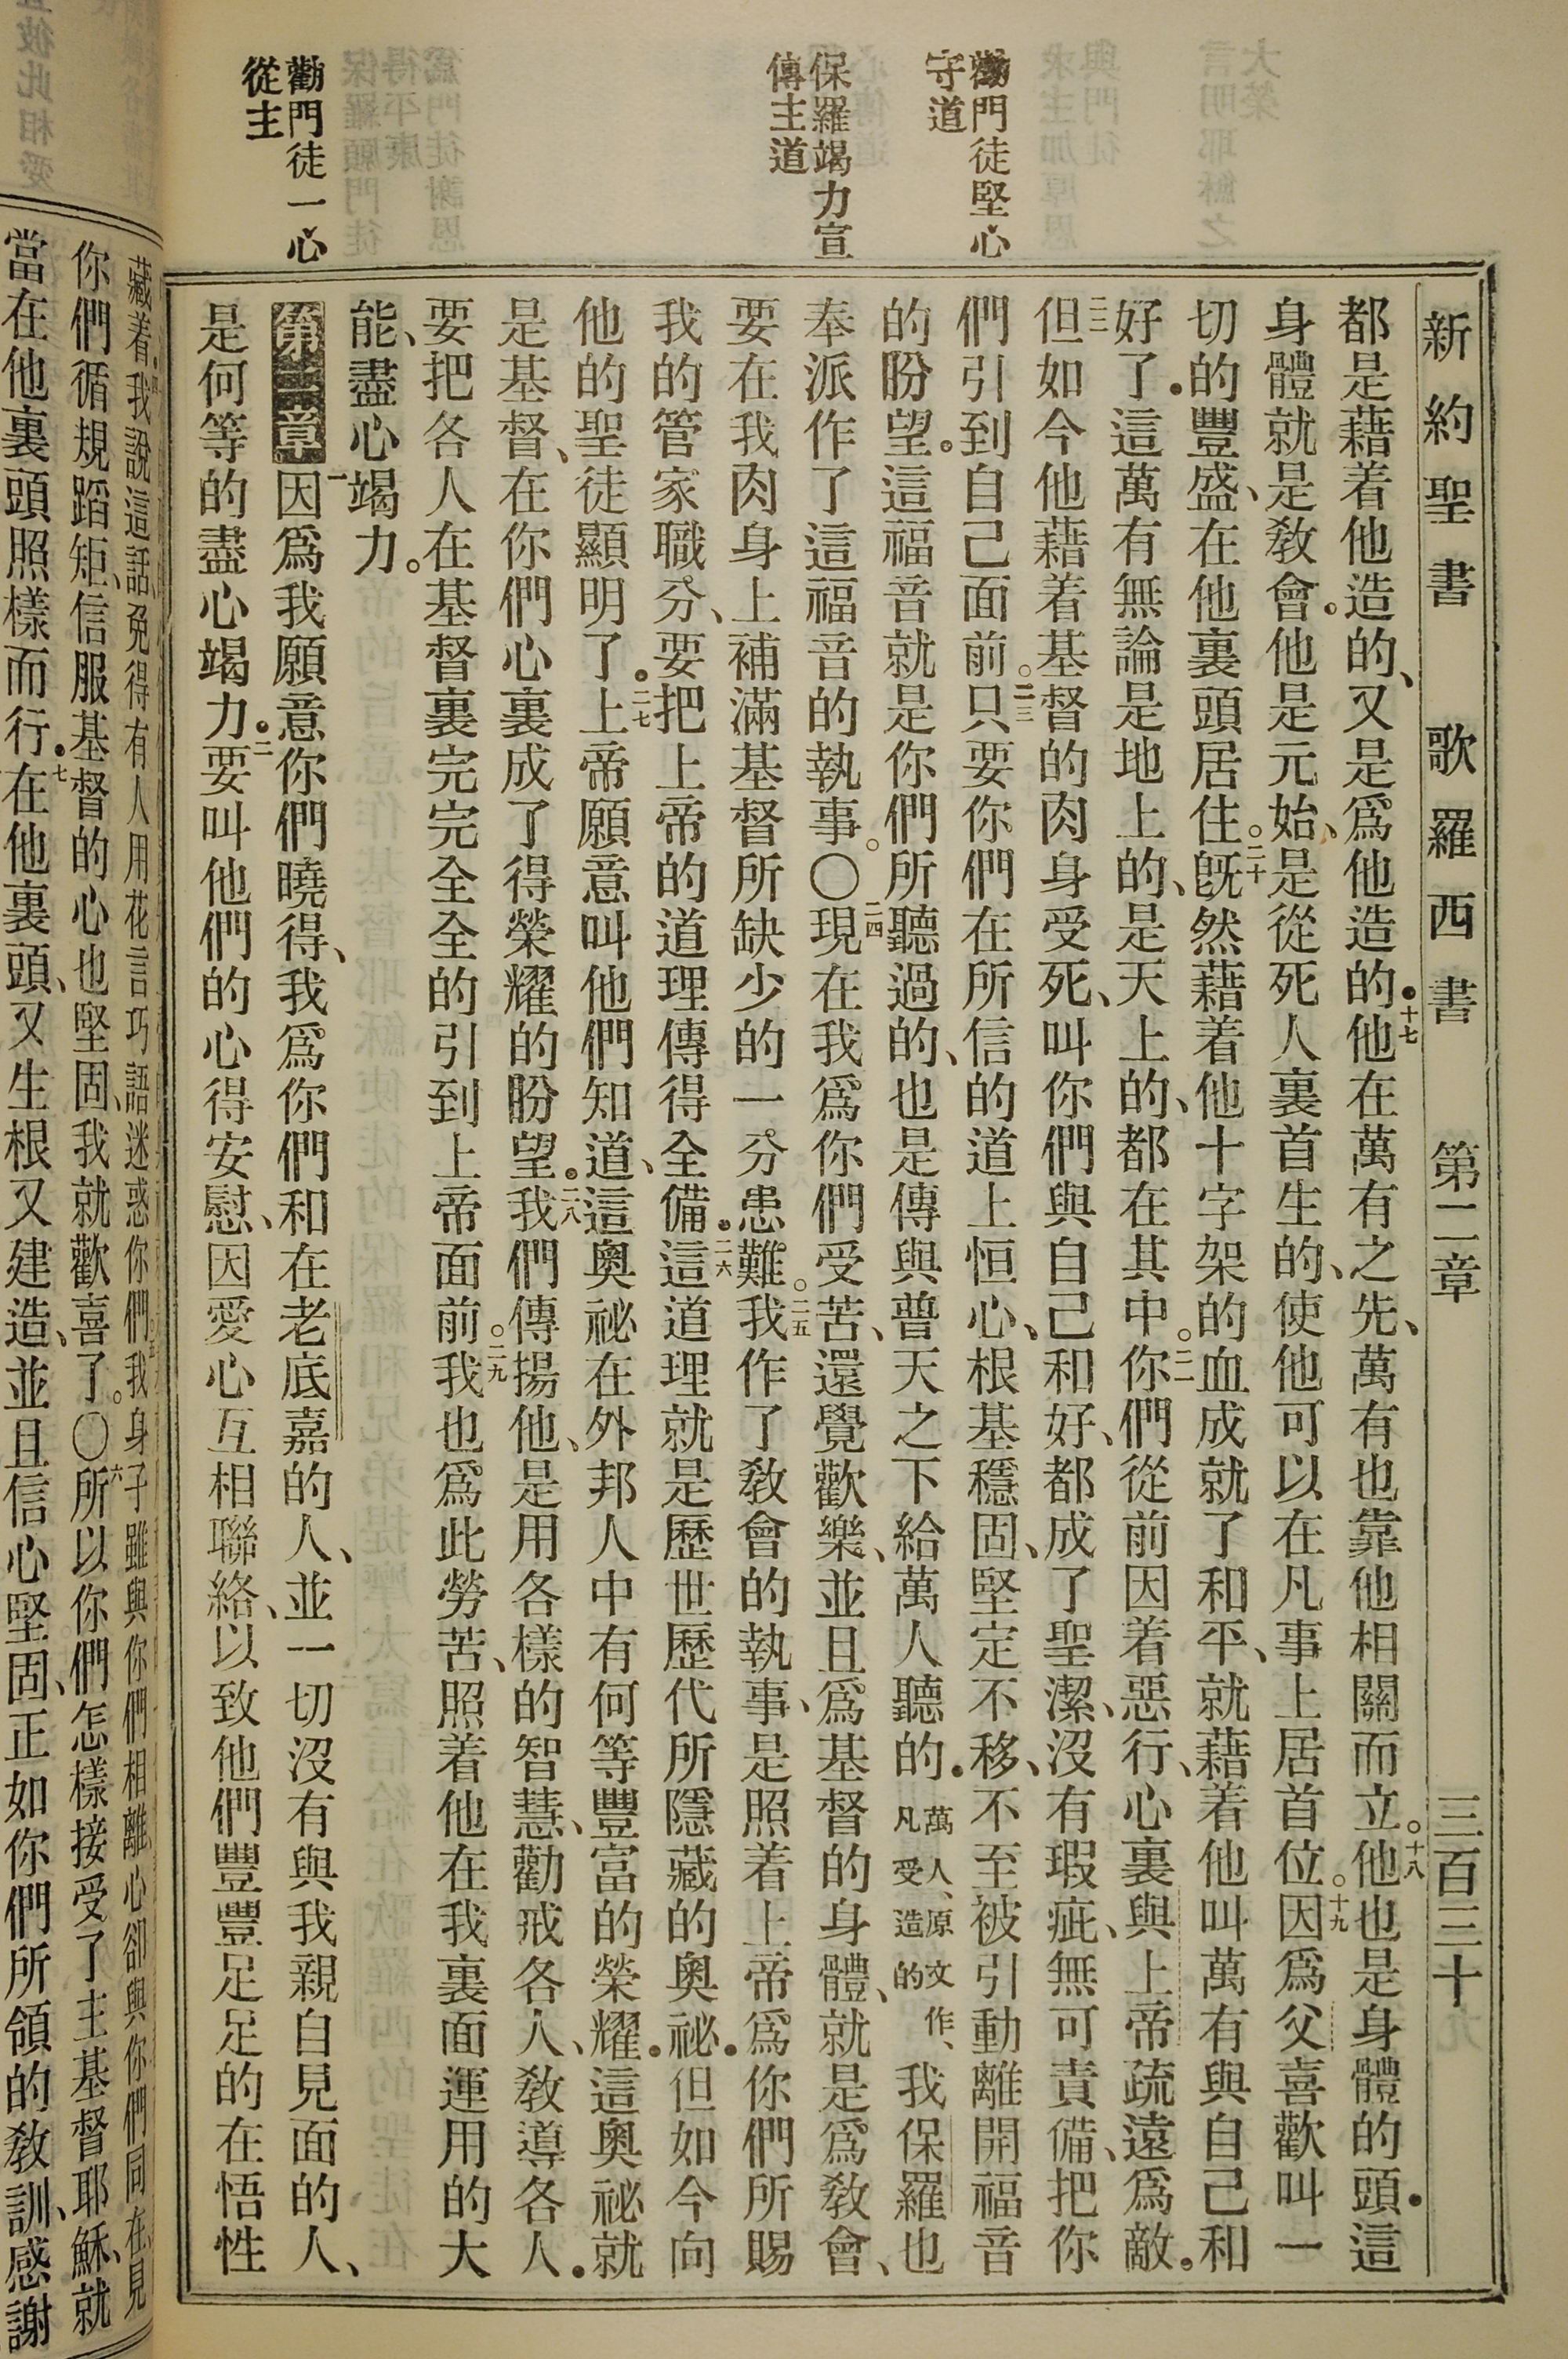 新約聖書 歌羅西書 第二章 三百三十九
勸門徒堅心
守道
保羅竭力宣
傳主道
勸門徒一心
從主
都是藉着他造的、又是爲他造的．十七他在萬有之先、萬有也靠他相關而立。十八他也是身體的頭．這
身體就是敎會．他是元始、是從死人裏首生的、使他可以在凡事上居首位。十九因爲父喜歡叫一
切的豐盛、在他裏頭居住。二十旣然藉着他十字架的血成就了和平、就藉着他叫萬有與自己和
好了．這萬有無論是地上的、是天上的、都在其中。二一你們從前因着惡行、心裏與上帝疏遠爲敵．
二二但如今他藉着基督的肉身受死、叫你們與自己和好、都成了聖潔、沒有瑕疵、無可責備、把你
們引到自己面前。二三只要你們在所信的道上恒心、根基穩固、堅定不移、不至被引動離開福音
的盼望。這福音就是你們所聽過的、也是傳與普天之下給萬人聽的．萬人、原文作、凡受造的我保羅也
奉派作了這福音的執事。〇二四現在我爲你們受苦、還覺歡樂、並且爲基督的身體、就是爲敎會、
要在我肉身上補滿基督所缺少的一分患難。二五我作了敎會的執事、是照着上帝爲你們所賜
我的管家職分、要把上帝的道理傳得全備．二六這道理就是歷世歷代所隱藏的奧祕．但如今向
他的聖徒顯明了．二七上帝願意叫他們知道、這奧祕在外邦人中有何等豐富的榮耀．這奧祕就
是基督、在你們心裏成了得榮耀的盼望．二八我們傳揚他、是用各樣的智慧、勸戒各人、敎導各人．
要把各人在基督裏完完全全的引到上帝面前。二九我也爲此勞苦、照着他在我裏面運用的大
能、盡心竭力。
第二章一因爲我願意你們曉得、我爲你們和在老底嘉的人、並一切沒有與我親自見面的人、
是何等的盡心竭力．二要叫他們的心得安慰、因愛心互相聯絡、以致他們豐豐足足的在悟性
藏着．我說這話、免得有人用花言巧語迷惑你們。五我身子雖與你們相離、心卻與你們同在、見
你們循規蹈矩、信服基督的心也堅固、我就歡喜了。〇六所以你們怎樣接受了主基督耶穌、就
當在他裏頭照樣而行．七在他裏頭、又生根又建造、並且信心堅固、正如你們所領的敎訓、感謝